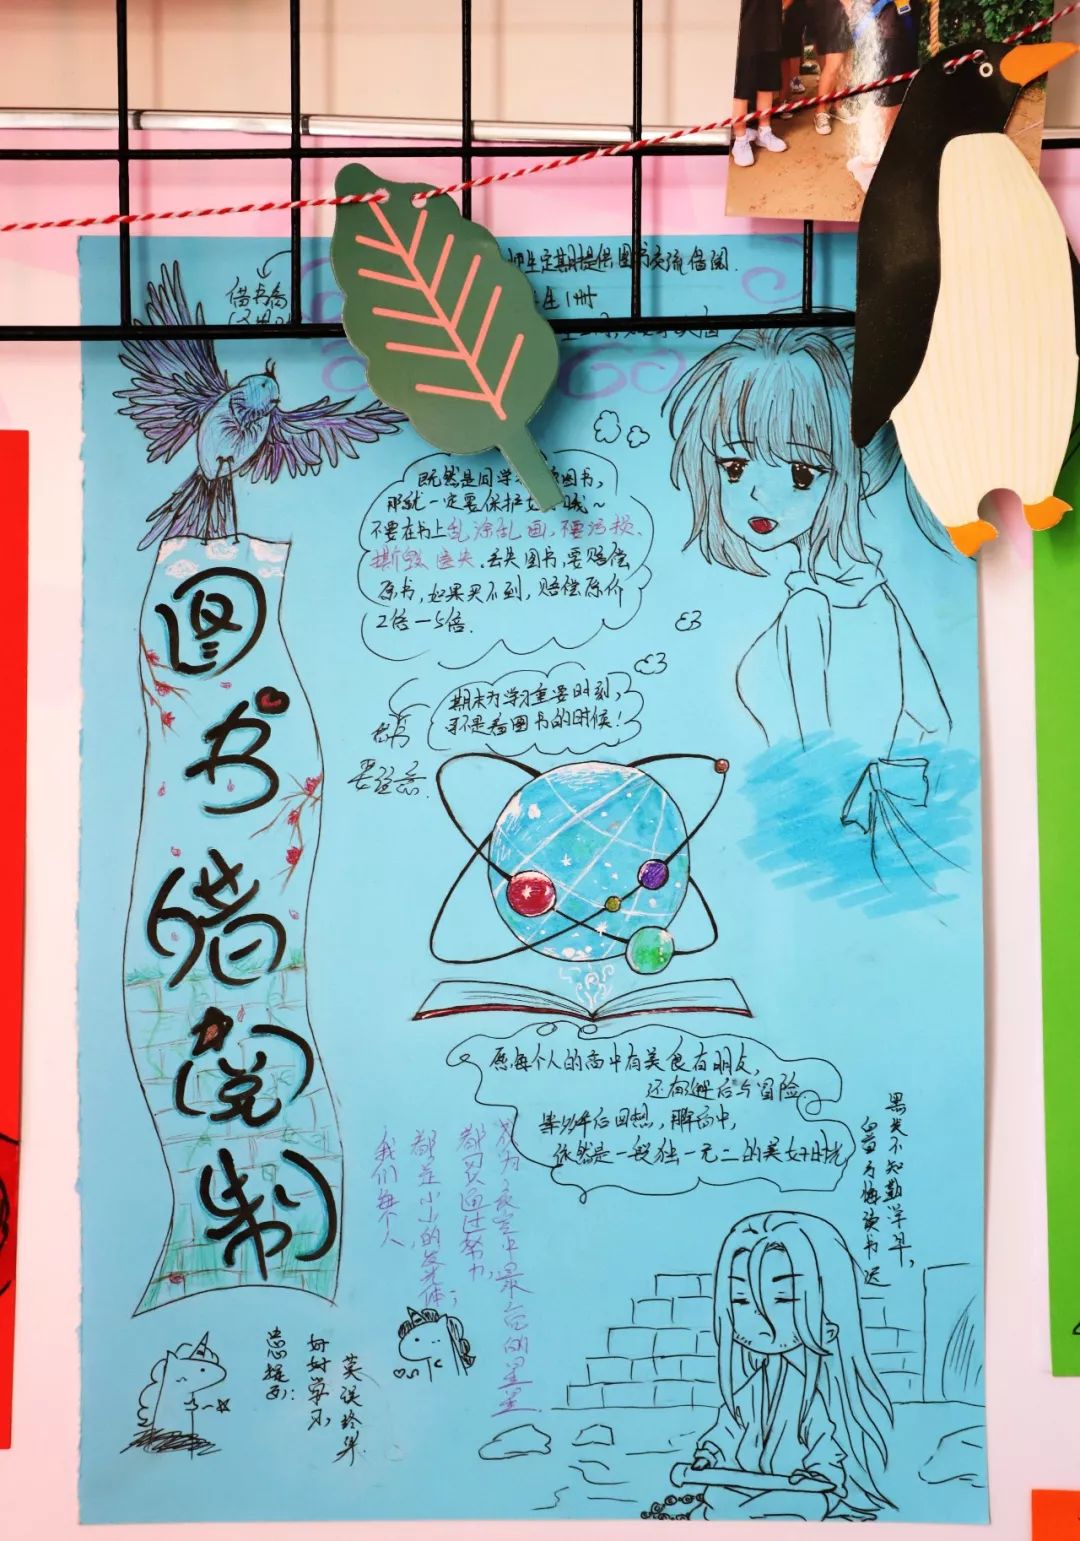 师生定期提供图书交流借阅.
生1册
借书
图书借阅制
既然是同学 图书，
那就一定要保护 哦～
不要在书上乱涂乱画，不要污损、
撕毁、遗失.丢失图书，要赔偿
原书，如果买不到，赔偿原价
2倍—5倍.
期末为学习重要时刻，
不是看图书的时候！
要注意.
愿每个人的高中有美食有朋友，
还有邂逅与冒险.
多年后回想，那高中，
依然是一段独一无二的美好时光
黑发不知勤学早，
白首方悔读书迟
我们每个人
都是小小的发光体；
都可以通过努力，
成为夜空中最亮的星星.
好好学习，
莫误终